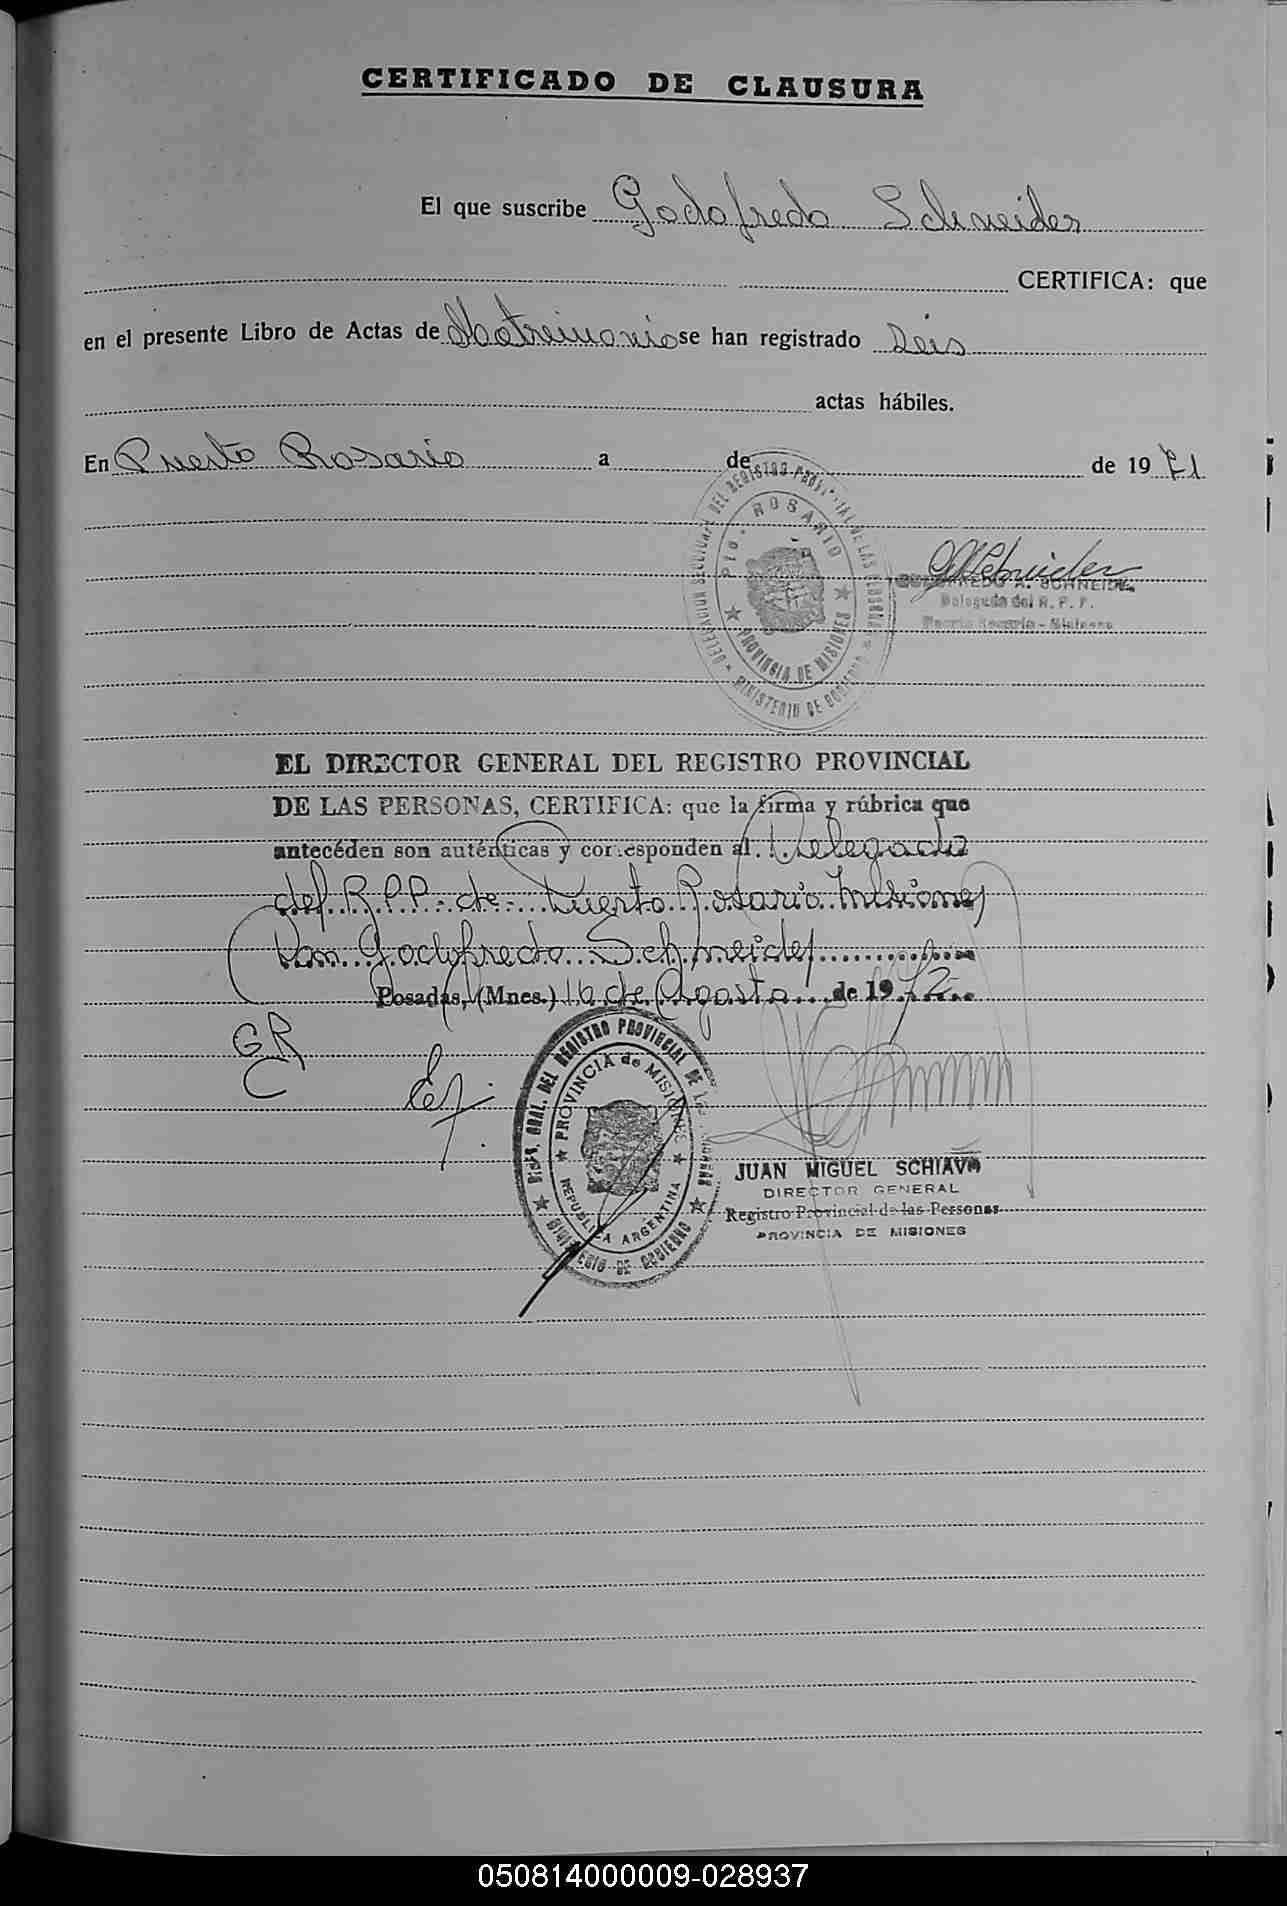 CERTIFICADO DE CLAUSURA
El que suscribe Godofredo Schneider
CERTIFICA: que
en el presente Libro de Actas de Matrimonio se han registrado Seis
actas hábiles.
En Puerto Rosario a de de 1971
DELEGACION SECCIONAL DEL REGISTRO PROVINCIAL DE LAS PERSONAS
Pto. ROSARIO
PROVINCIA DE MISIONES
MINISTERIO DE GOBIERNO
GASchneider
GODOFREDO A. SCHNEIDER
Delegado del R. P. P.
Puerto Rosario - Misiones
EL DIRECTOR GENERAL DEL REGISTRO PROVINCIAL
DE LAS PERSONAS, CERTIFICA: que la firma y rúbrica que
antecéden son auténticas y corresponden al Delegado
del R.P.P. de Puerto Rosario Misiones
Don Godofredo Schneider
Posadas, (Mnes.) 16 de Agosto de 1972
GR
DIREC. GRAL. DEL REGISTRO PROVINCIAL DE LAS PERSONAS
PROVINCIA de MISIONES
REPUBLICA ARGENTINA
MINISTERIO DE GOBIERNO
JUAN MIGUEL SCHIAVO
DIRECTOR GENERAL
Registro Provincial de las Personas
PROVINCIA DE MISIONES
050814000009-028937